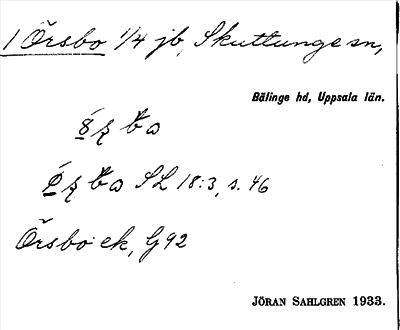 1 Örsbo 1/4 jb, Skuttunge sn,
Bälinge hd, Uppsala län.
SL 18:3, s. 46
Örsbo: ek, G92
JÖRAN SAHLGREN 1933.